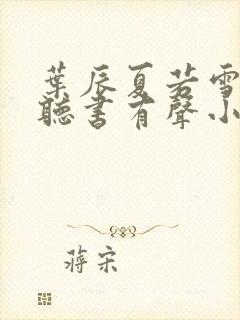 葉辰夏若雪
聽書有聲小
蔣宋